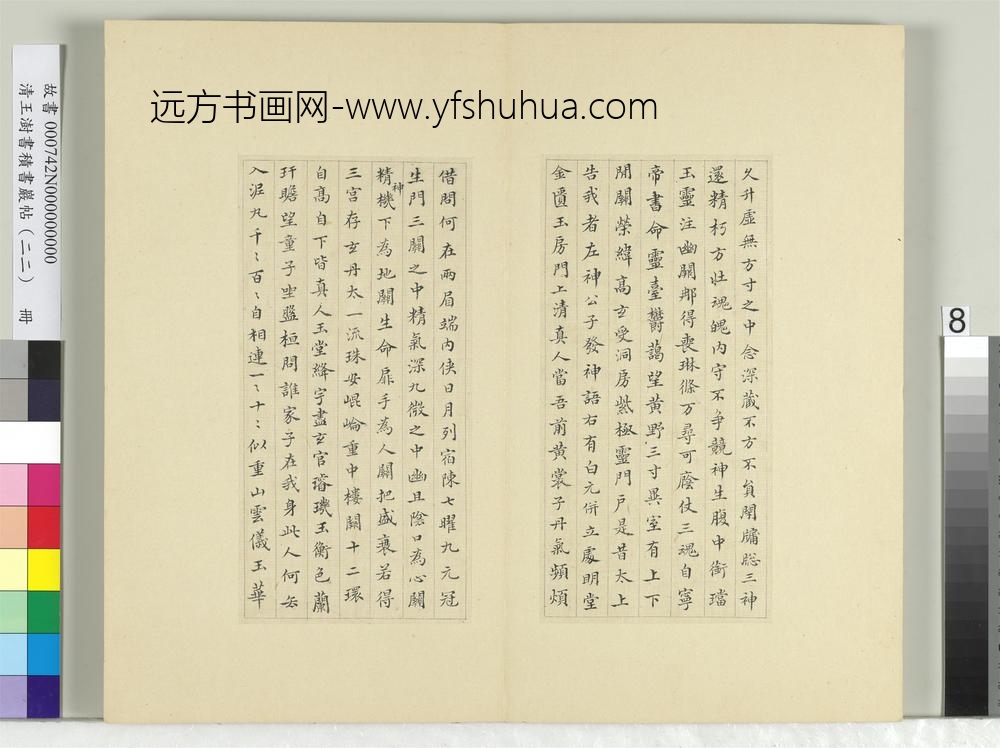 远方书画网-www.yfshuhua.com
故書 000742N000000000
清王澍書積書巖帖(二二) 冊
8
久升虛無方寸之中念深藏不方不員閉牖聡三神
還精朽方壯魂魄內守不争競神生腹中銜璫
玉靈注幽闕那得喪琳條万尋可廕仗三魂自寧
帝書命靈臺鬱藹望黄野三寸異室有上下
閒關榮緯高玄受洞房紫極靈門戸是昔太上
告我者左神公子發神語右有白元併立處明堂
金匱玉房門上清真人當吾前黄裳子丹氣頻煩
借問何在兩眉端內侠日月列宿陳七曜九元冠
生門三關之中精氣深九微之中幽且陰口為心關
精神機下為地關生命扉手為人關把盛衰若得
三宮存玄丹太一流珠安崐崘重中樓闕十二環
自髙自下皆真人玉堂絳宇盡玄宫璿璣玉衡色蘭
玕瞻望童子坐盤桓問誰家子在我身此人何去
入泥丸千〻百〻自相連一〻十〻似重山雲儀玉華